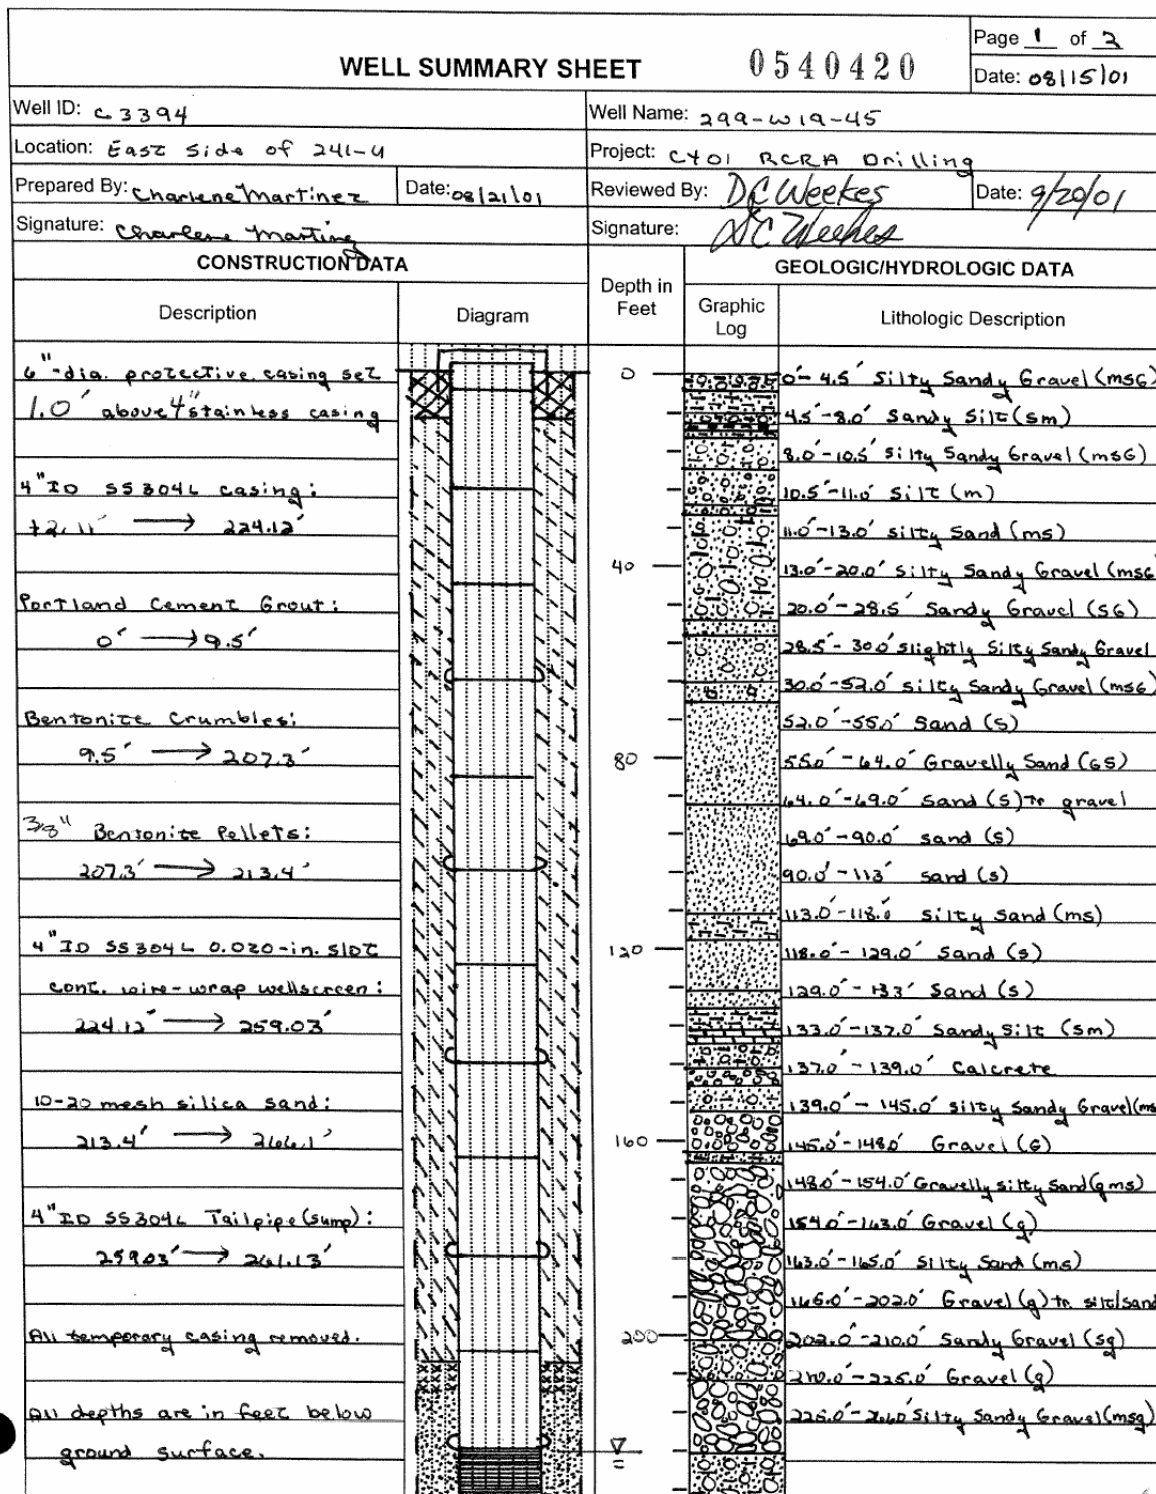 Page 1 of 2
WELL SUMMARY SHEET
0540420
Date: 08/15/01
Well ID: C3394
Well Name: 299-W19-45
Location: East Side of 241-U
Project: CY01 RCRA Drilling
Prepared By: Charlene Martinez
Date: 08/21/01
Reviewed By: DC Weekes
Date: 9/20/01
Signature: Charlene Martinez
Signature: DC Weekes
CONSTRUCTION DATA
GEOLOGIC/HYDROLOGIC DATA
Description
Diagram
Depth in Feet
Graphic Log
Lithologic Description
6"-dia. protective casing set
1.0' above 4" stainless casing
4" ID SS304L casing:
+2.11' → 224.12'
Portland Cement Grout:
0' → 9.5'
Bentonite Crumbles:
9.5' → 207.3'
3/8" Bentonite Pellets:
207.3' → 213.4'
4" ID SS304L 0.020-in. slot
cont. wire-wrap wellscreen:
224.12' → 259.03'
10-20 mesh silica sand:
213.4' → 266.1'
4" ID SS304L Tailpipe (sump):
259.03' → 261.13'
All temporary casing removed.
All depths are in feet below
ground surface.
0
40
80
120
160
200
0'-4.5' Silty Sandy Gravel (msG)
4.5'-8.0' Sandy Silt (sm)
8.0'-10.5' Silty Sandy Gravel (msG)
10.5'-11.0' Silt (m)
11.0'-13.0' Silty Sand (ms)
13.0'-20.0' Silty Sandy Gravel (msG
20.0'-28.5' Sandy Gravel (sG)
28.5'-30.0' slightly Silty Sandy Gravel
30.0'-52.0' Silty Sandy Gravel (msG)
52.0'-55.0' Sand (s)
55.0'-64.0' Gravelly Sand (GS)
64.0'-69.0' Sand (s) tr gravel
69.0'-90.0' Sand (s)
90.0'-113' Sand (s)
113.0'-118.0' Silty Sand (ms)
118.0'-129.0' Sand (s)
129.0'-133' Sand (s)
133.0'-137.0' Sandy Silt (sm)
137.0'-139.0' Calcrete
139.0'-145.0' Silty Sandy Gravel (ms
145.0'-148.0' Gravel (G)
148.0'-154.0' Gravelly silty Sand (gms)
154.0'-163.0' Gravel (g)
163.0'-165.0' Silty Sand (ms)
166.0'-202.0' Gravel (g) tr silt/sand
202.0'-210.0' Sandy Gravel (sg)
210.0'-225.0' Gravel (g)
Silty Sandy Gravel (msg)